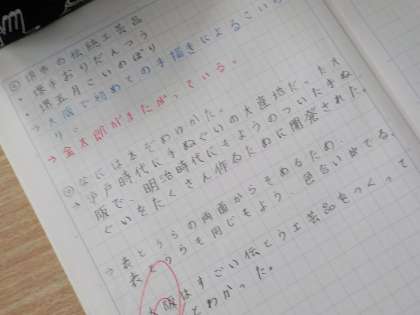 堺市の伝統工芸品
・堺手おりだんつう
・堺五月こいのぼり
→大阪で初めての手描きによるこい
り。
→金太郎がまたがっている。
なには本ぞめゆかた。
江戸時代に手ぬぐいの大産地だった大
阪で、明治時代にもようのついた手ぬ
ぐいをたくさん作るために開発された。
→表とうらの両面からそめるため、
表とうらも同じもよう、色あいがでる。
大阪はすごい伝とう工芸品をつくって
とわかった。